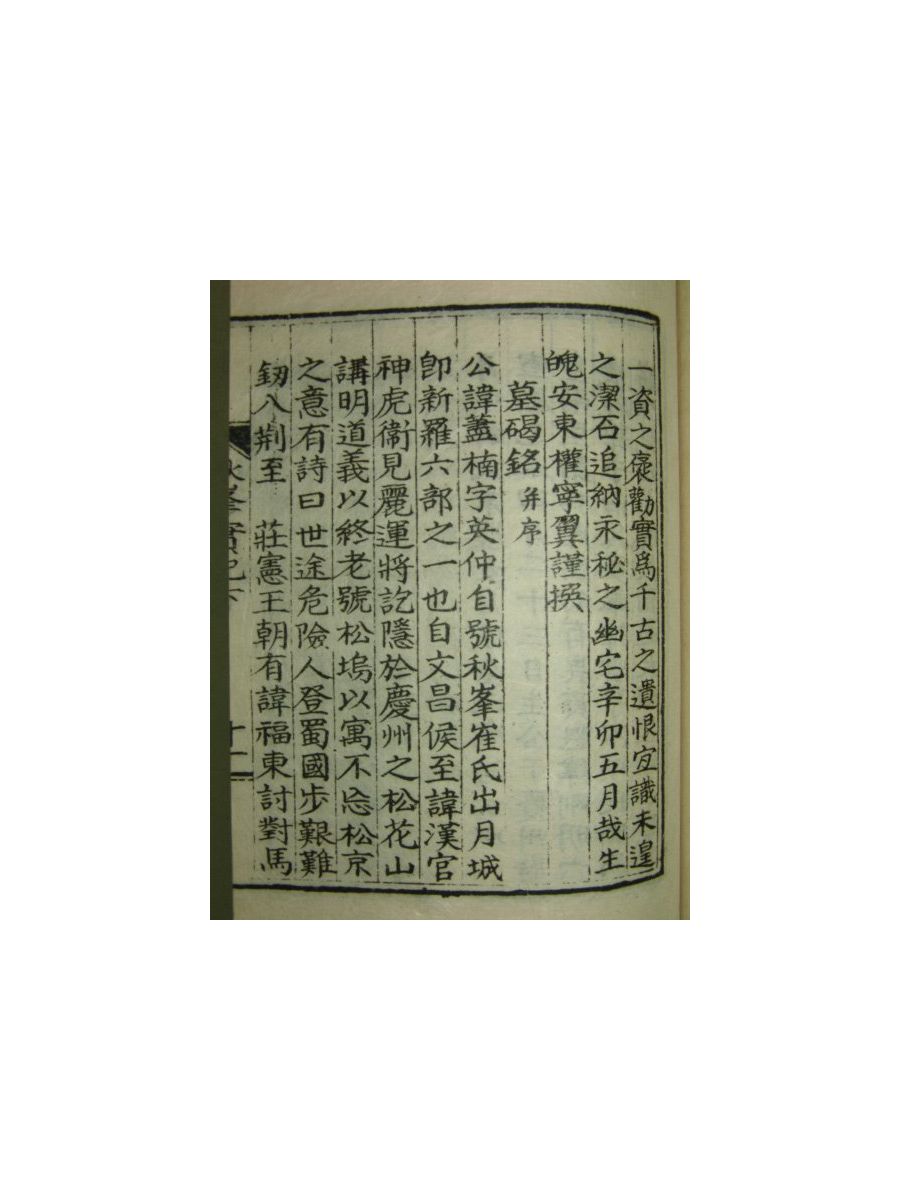 一資之褒勸實爲千古之遺恨宜識未遑
之潔石追納永秘之幽宅辛卯五月哉生
魄安東權寧翼謹撰
墓碣銘 幷序
公諱蓋楠字英仲自號秋峯崔氏出月城
卽新羅六部之一也自文昌侯至諱漢官
神虎衛見麗運將訖隱於慶州之松花山
講明道義以終老號松塢以寓不忘松京
之意有詩曰世途危險人登蜀國步艱難
釰八荆至 莊憲王朝有諱福東討對馬
秋峯實記下
十二